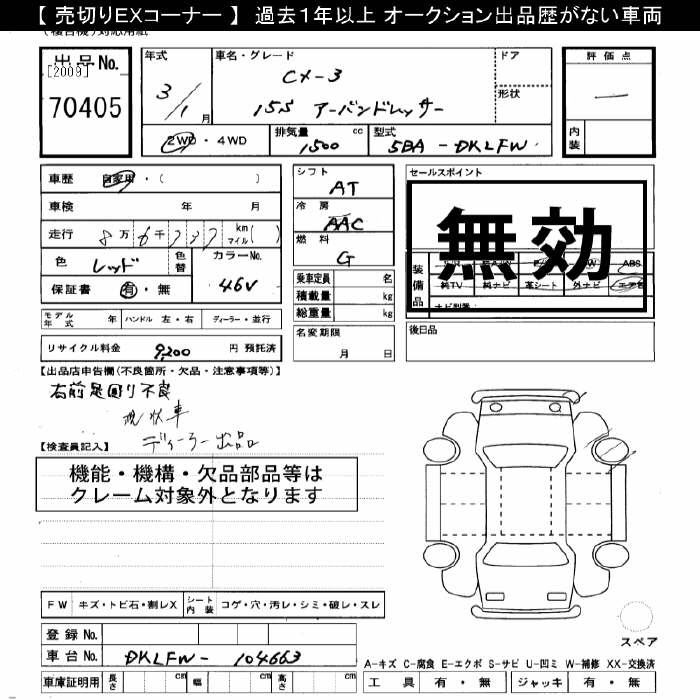 【 売切りEXコーナー 】 過去1年以上 オークション出品歴がない車両
出品No.
[2009]
70405
年式
3/1月
車名・グレード
CX-3
15S アーバンドレッサー
ドア
形状
評価点
—
内装
2WD・4WD
排気量
1500 cc
型式
5BA-DKLFW
車歴 自家用・( )
車検 年 月
走行 8万6千787 km マイル( )
色 レッド
色替
カラーNo.
46V
保証書 有・無
モデル年式 年
ハンドル 左・右
ディーラー・並行
リサイクル料金 9,200 円 預託済
シフト
AT
冷房
AAC
燃料
G
乗車定員 名
積載量 kg
総重量 kg
名変期限
月 日
セールスポイント
無効
装備品
ABS
純TV 純ナビ 革シート 外ナビ エアB
後日品
【出品店申告欄(不良箇所・欠品・注意事項等)】
右前足回り不良
現状車
ディーラー出品
【検査員記入】
機能・機構・欠品部品等は
クレーム対象外となります
FW キズ・トビ石・割レX
シート内装 コゲ・穴・汚レ・シミ・破レ・スレ
登録No.
車台No. DKLFW-104663
車庫証明用 長さ cm 幅 cm 高さ cm
スペア
A-キズ C-腐食 E-エクボ S-サビ U-凹ミ W-補修 XX-交換済
工具 有・無 ジャッキ 有・無